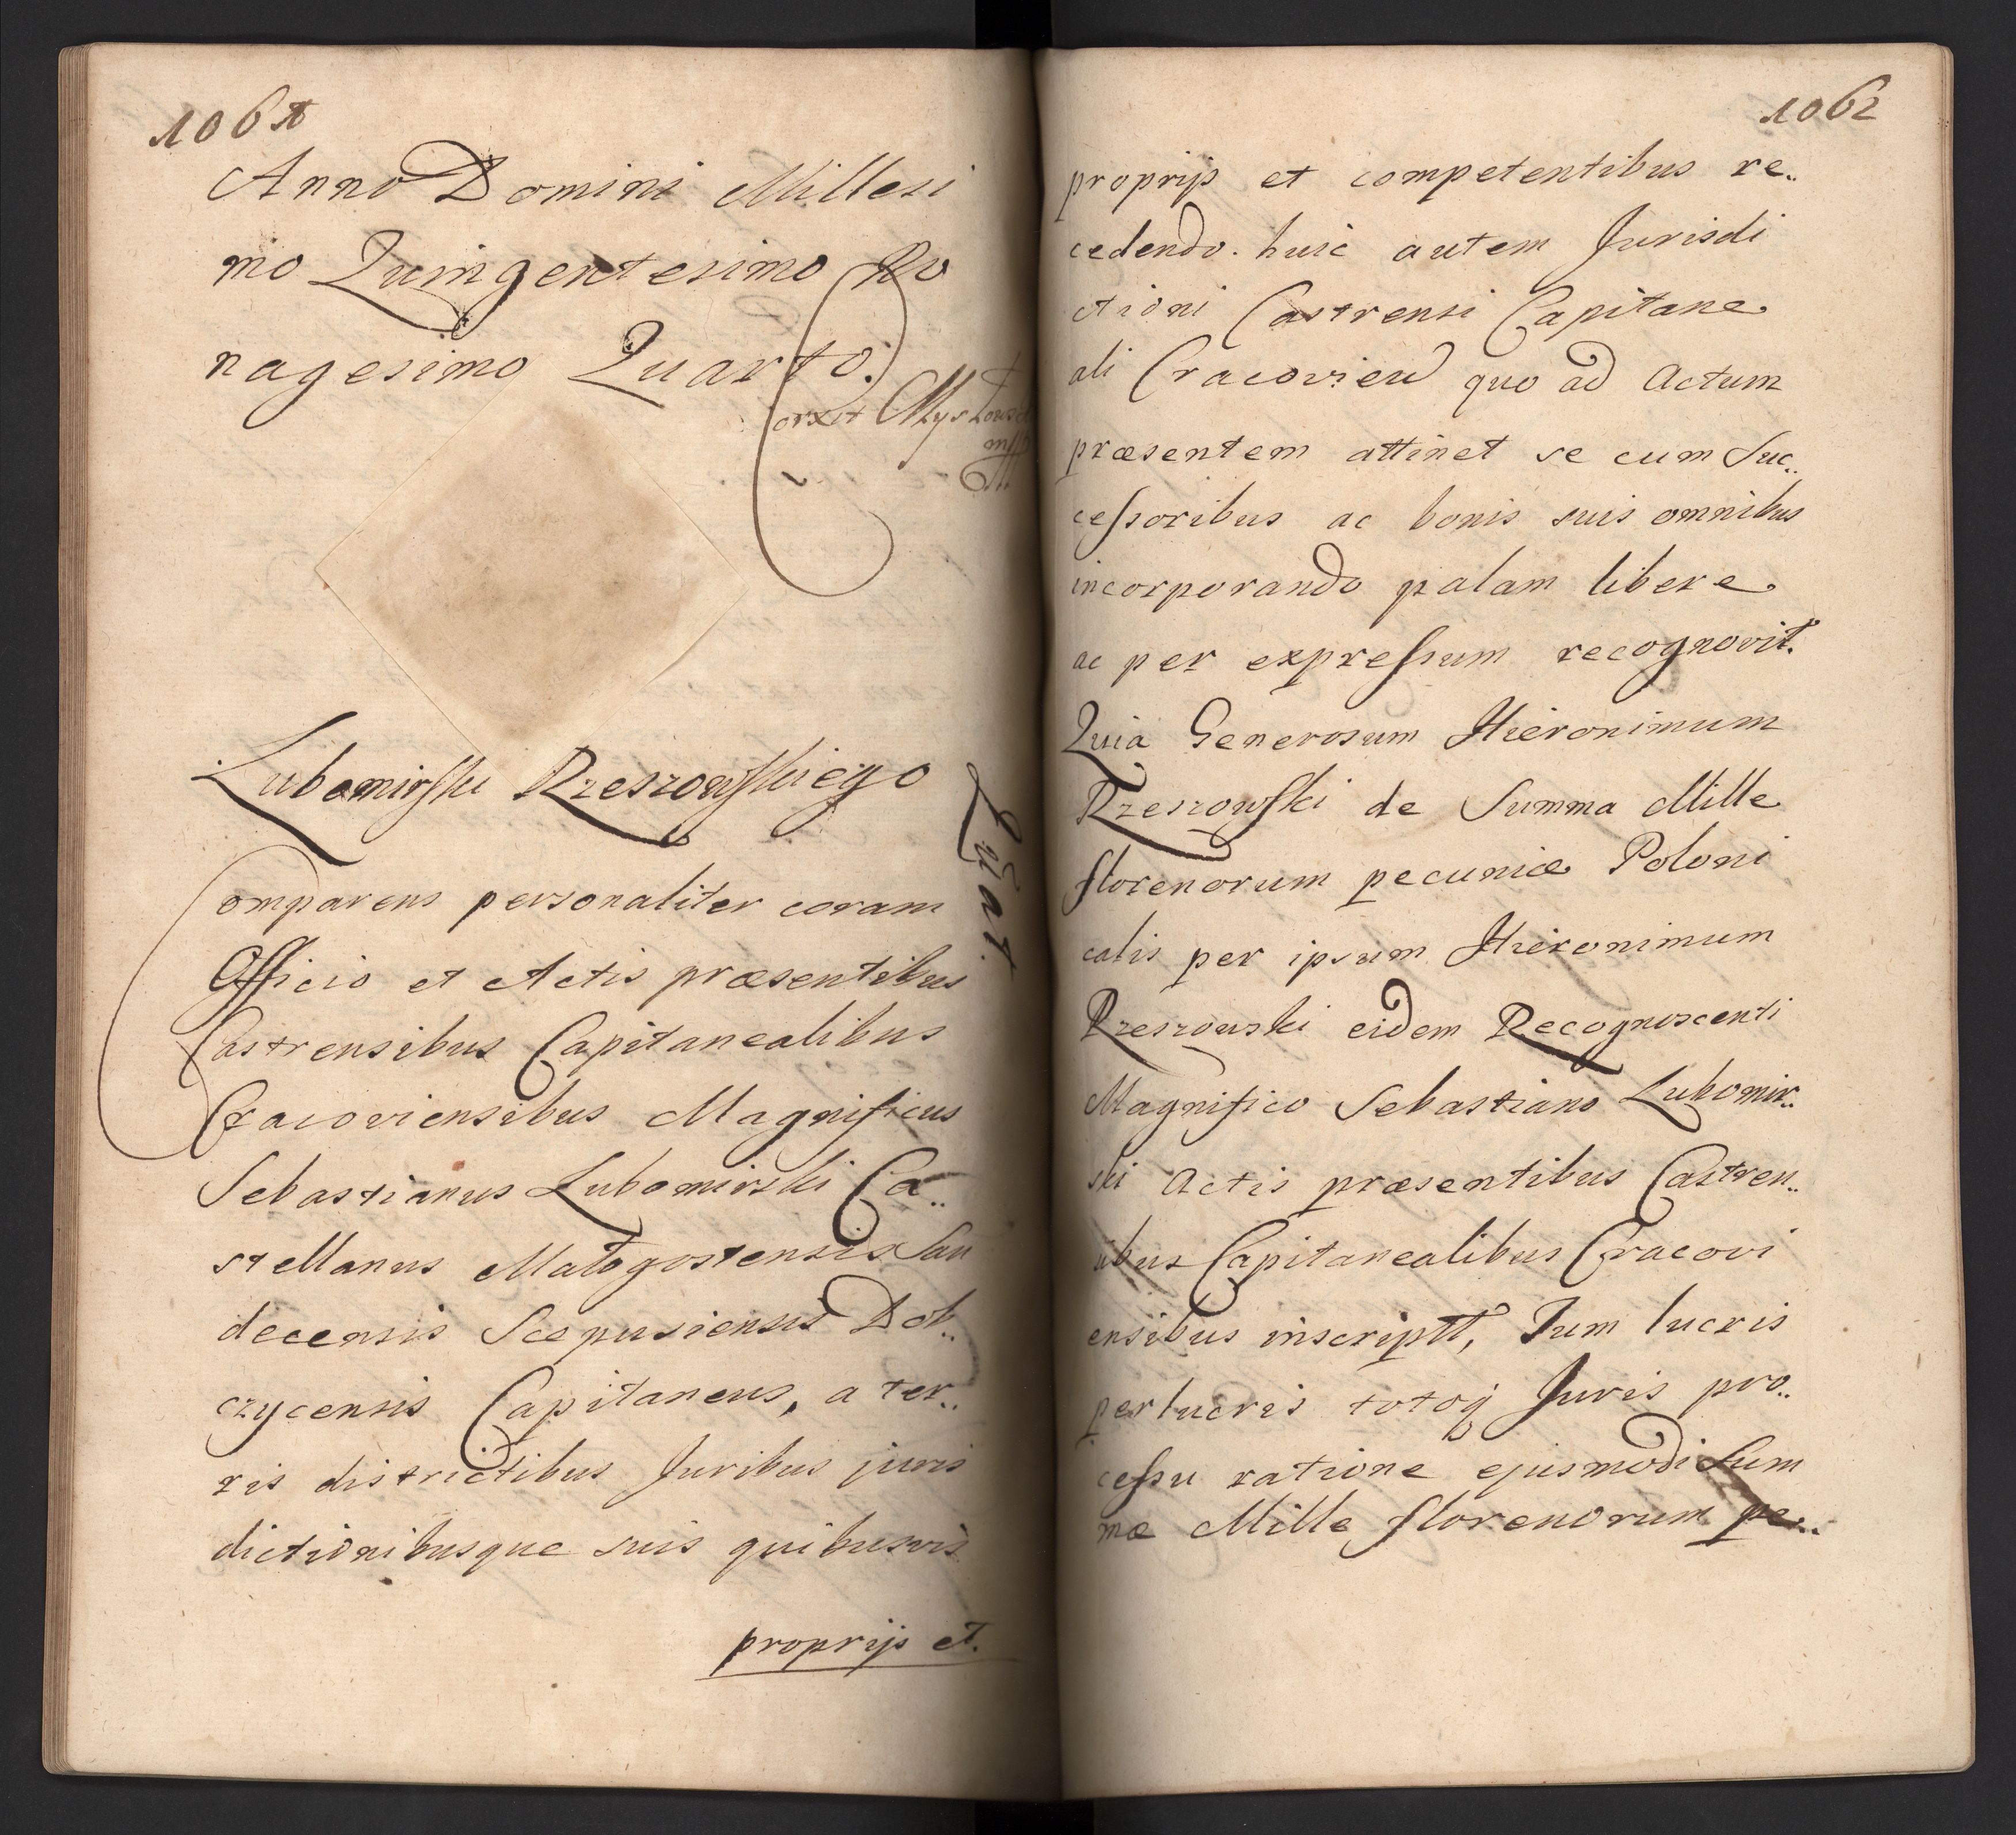 1061
Anno Domini Millesi
mo Quingentesimo No
nagesimo Quarto.
Lubomirski Rzeszowskiego
Quat.
Comparens personaliter coram
Officio et Actis præsentibus
Castrensibus Capitanealibus
Cracoviensibus Magnificus
Sebastianus Lubomirski Ca..
stellanus Malogostensis San
decensis Scepusiensis Dob..
czycensis Capitaneus, a ter..
ris districtibus Juribus juris
dictionibusque suis quibusvis
proprijs et.
1062
proprijs et competentibus re..
cedendo. huic autem Jurisdi
ctioni Castrensi Capitane
ali Cracovien quo ad Actum
præsentem attinet se cum Suc..
cessoribus ac bonis suis omnibus
incorporando palam libere
ac per expressum recognovit.
Quia Generosum Hieronimum
Rzeszowski de Summa Mille
florenorum pecuniæ Poloni
calis per ipsum Hieronimum
Rzeszowski eidem Recognoscenti
Magnifico Sebastiano Lubomir..
ski Actis præsentibus Castren..
sibus Capitanealibus Cracovi
ensibus inscriptt, Tum lucris
perlucris totoq Juris pro..
cessu ratione ejusmodi Sum
mæ Mille florenorum pe..